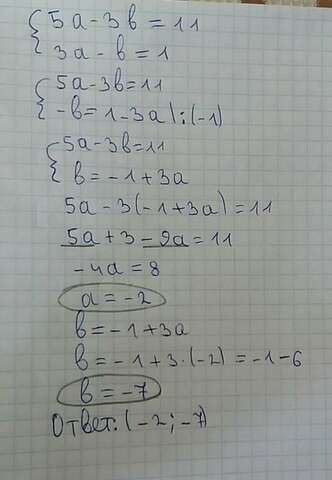 { 5a - 3в = 11
3a - в = 1
{ 5a - 3в = 11
-в = 1 - 3a | : (-1)
{ 5a - 3в = 11
в = -1 + 3a
5a - 3(-1 + 3a) = 11
5a + 3 - 9a = 11
-4a = 8
a = -2
в = -1 + 3a
в = -1 + 3·(-2) = -1 - 6
в = -7
Ответ: (-2; -7)